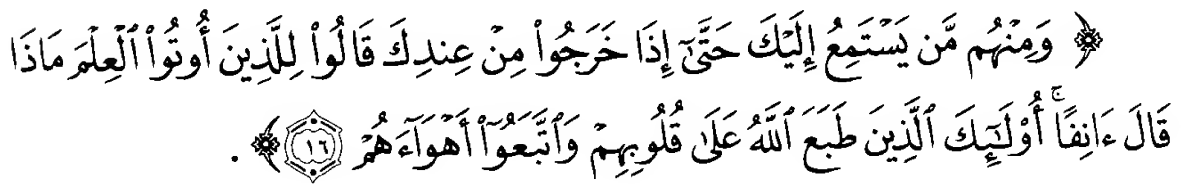 ﴿ وَمِنْهُم مَّن يَسْتَمِعُ إِلَيْكَ حَتَّىٰٓ إِذَا خَرَجُواْ مِنْ عِندِكَ قَالُواْ لِلَّذِينَ أُوتُواْ ٱلْعِلْمَ مَاذَا
قَالَ ءَانِفًاۚ أُوْلَـٰٓئِكَ ٱلَّذِينَ طَبَعَ ٱللَّهُ عَلَىٰ قُلُوبِهِمْ وَٱتَّبَعُوٓاْ أَهْوَآءَهُمْ ١٦ ﴾ .